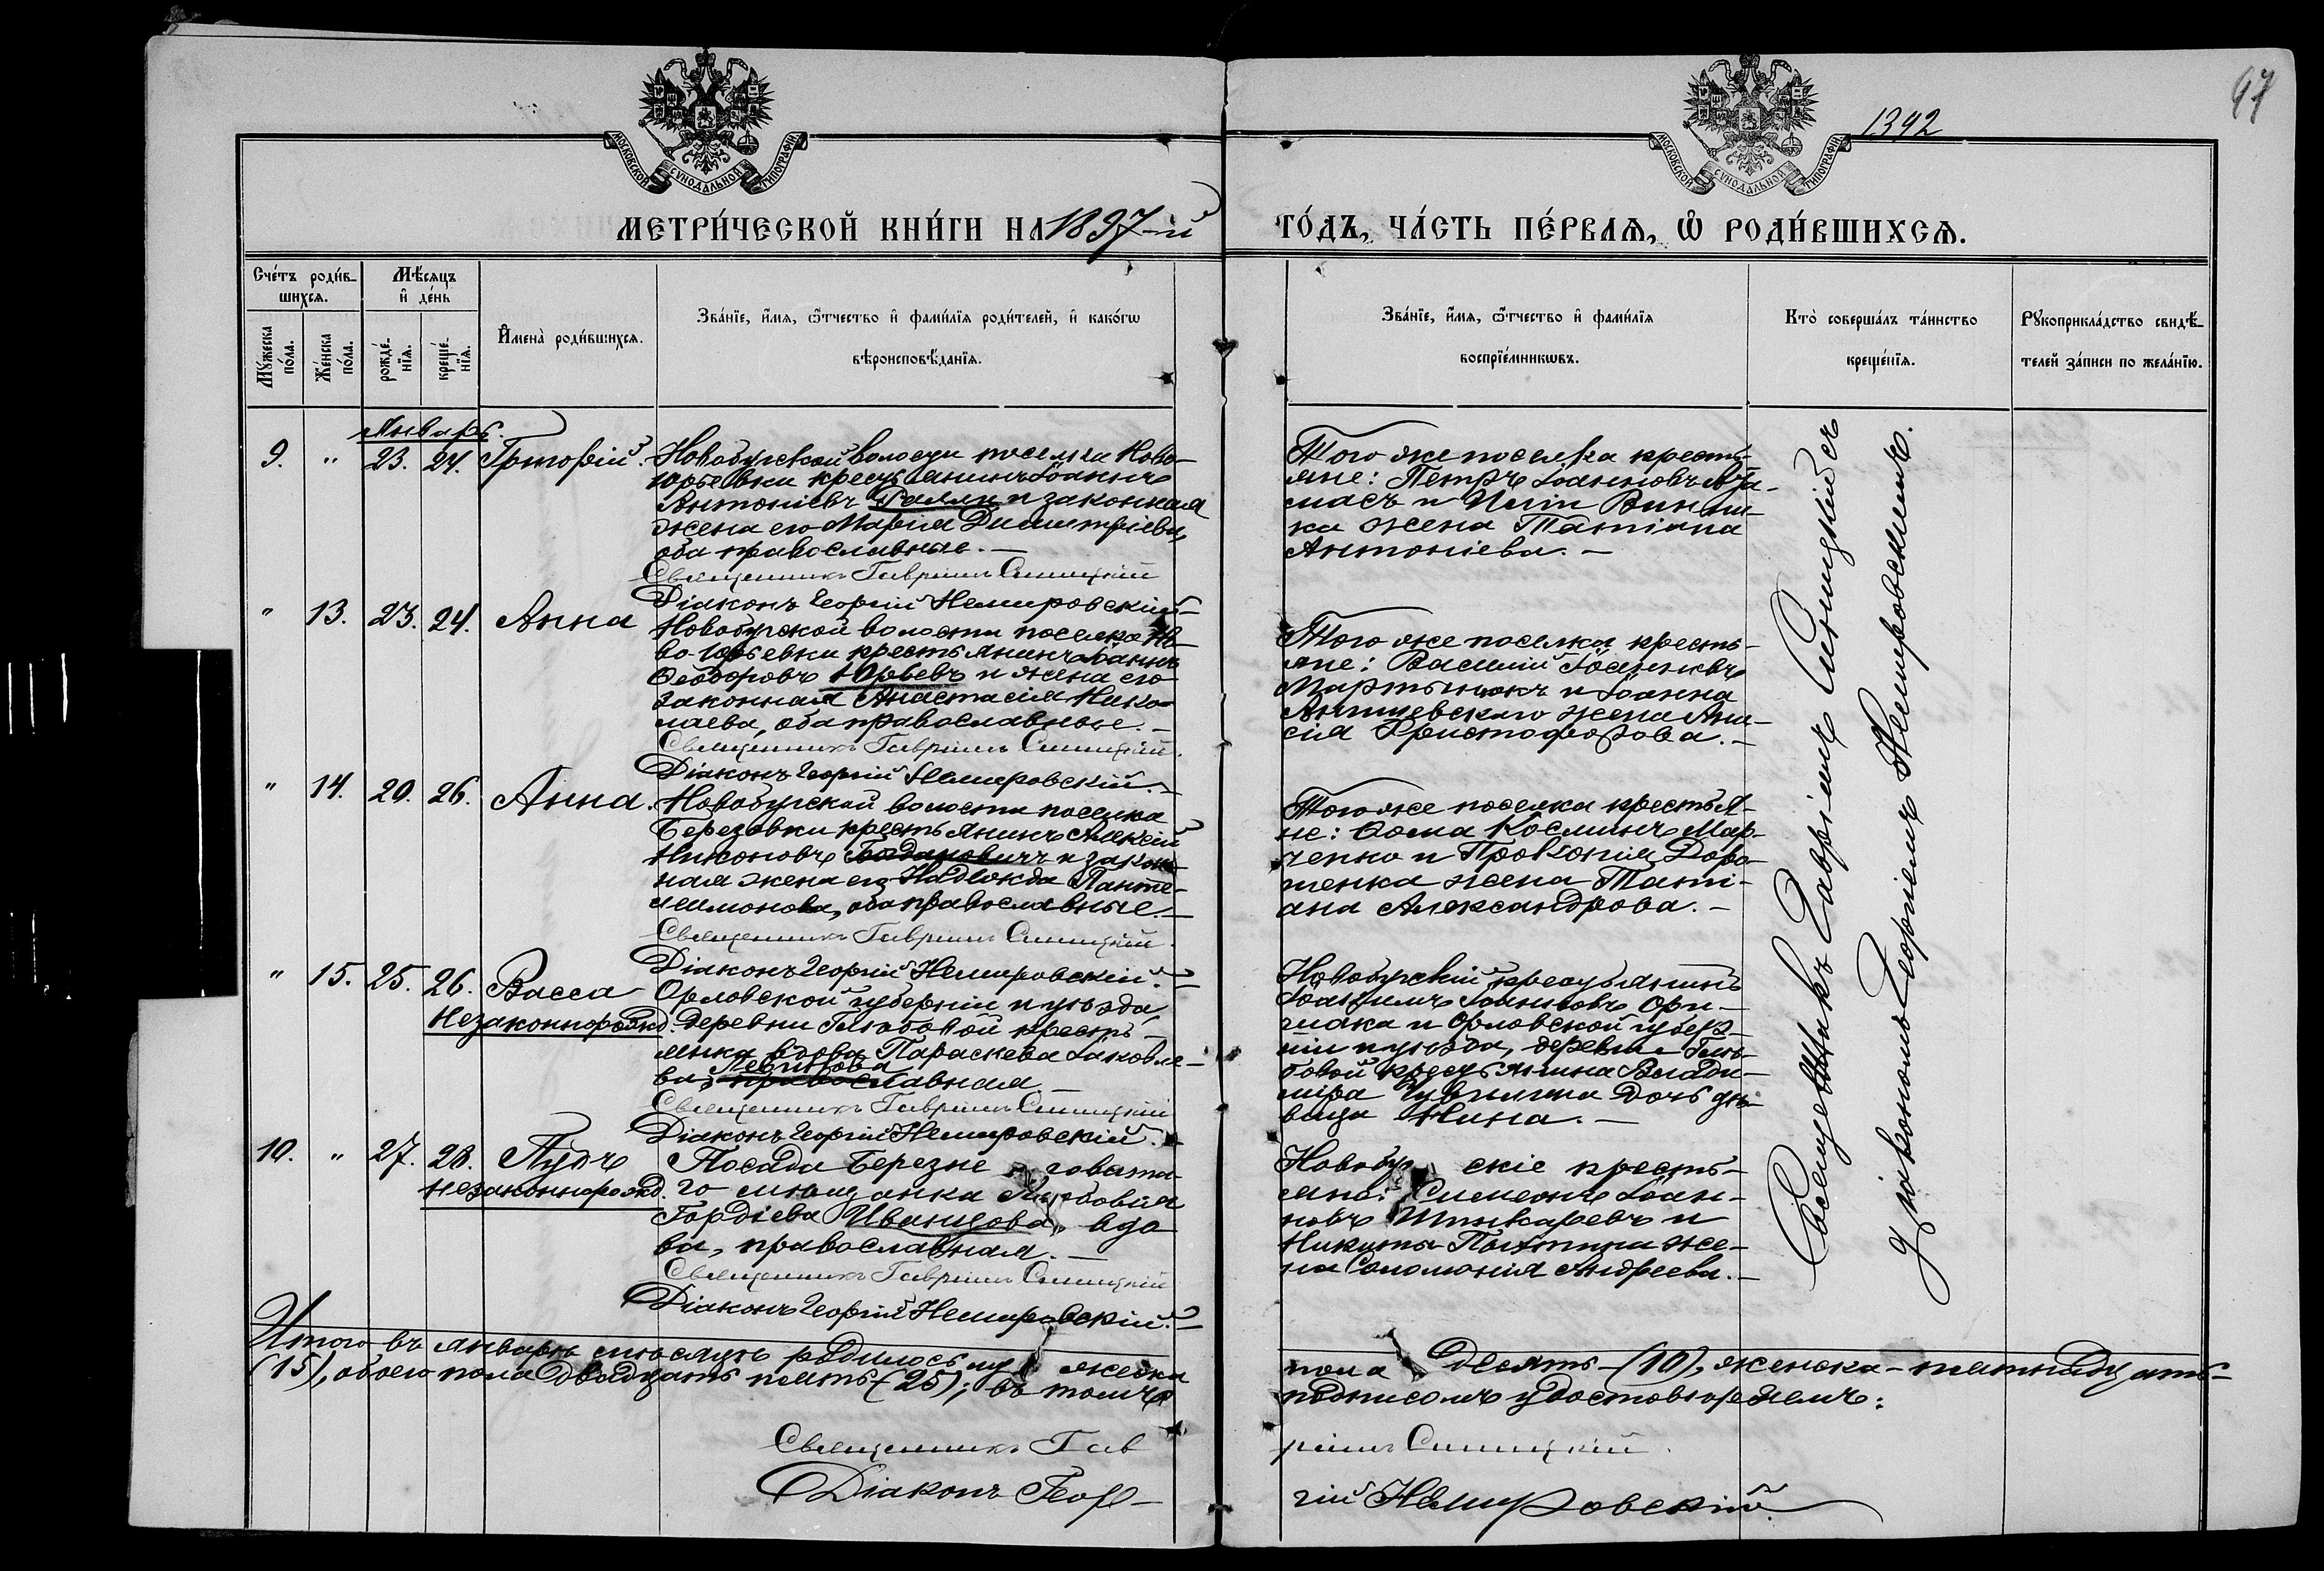 1342
67
МОСКОВСКОЙ СУНОДАЛЬНОЙ ТИПОГРАФІИ
МОСКОВСКОЙ СУНОДАЛЬНОЙ ТИПОГРАФІИ
МЕТРИ́ЧЕСКОЙ КНИ́ГИ НА 1897-й ГО́ДЪ, ЧА́СТЬ ПЕ́РВАѦ, Ѡ҆ РОДИ́ВШИХСѦ.
Сче́тъ роди́в-
шихсѧ.
Мѣ́сѧцъ
и҆ де́нь
Мꙋ́жеска по́ла.
Же́нска по́ла.
рожде́-
нїѧ.
креще́-
нїѧ.
И҆мена̀ роди́вшихсѧ.
Зва́нїе, и҆́мѧ, ѻ҆́тчество и҆ фами́лїѧ роди́телей, и҆ како́гѡ
вѣроисповѣ́данїѧ.
Зва́нїе, и҆́мѧ, ѻ҆́тчество и҆ фами́лїѧ
воспрїе́мникѡвъ.
Кто̀ соверша́лъ та́инство
креще́нїѧ.
Рꙋкоприкла́дство свидѣ́-
телей за́писи по жела́нїю.
Январь.
9. " 23. 24. Григорій.
Новобугской волости поселка Ново-
юрьевки крестьянинъ Іоаннъ
Антоніевъ Галян и законная
жена его Марія Димитріева,
оба православные.—
Священникъ Гавріилъ Синицкій
Діаконъ Георгій Немировскій.—
Того же поселка кресть-
яне: Петръ Іоанновъ
и
жена Татіана
Антоніева.—
" 13. 23. 24. Анна
Новобугской волости поселка Но-
во-Юрьевки крестьянинъ Іоаннъ
Ѳеодоровъ Юрьевъ и жена его
законная Анастасія Нико-
лаева, оба православные.—
Священникъ Гавріилъ Синицкій.
Діаконъ Георгій Немировскій.—
Того же поселка кресть-
яне: Василій Іосифовъ
Мартынюкъ и Іоанна
жена Ани-
сія Христофорова.—
" 14. 20. 26. Анна.
Новобугской волости поселка
Березовки крестьянинъ Алексій
Никоновъ Богдановичъ и закон-
ная жена его Надежда Панте-
леимонова, оба православные.—
Священникъ Гавріилъ Синицкій.
Діаконъ Георгій Немировскій.—
Того же поселка крестья-
не: Ѳома Косминъ Мар-
ченко и Прокопія Доро-
шенка жена Тати-
ана Александрова.—
" 15. 25. 26. Васса
незаконнорожд.
Орловской губерніи и уѣзда,
деревни Глѣбовой кресть-
янка вдова Параскева Іаковле-
ва Левшкова, православная.—
Священникъ Гавріилъ Синицкій
Діаконъ Георгій Немировскій.
Новобугскій крестьянинъ
Іоакимъ Іоанновъ
и Орловской губер-
ніи и уѣзда, деревни Глѣ-
бовой крестьянина Влади-
міра дочь дѣ-
вица Нина.—
10. " 27. 28. Пудъ
незаконнорожд.
Посада Березнеговата-
го мѣщанка Любовія
Гордіева Иванцова, вдо-
ва, православная.—
Священникъ Гавріилъ Синицкій
Діаконъ Георгій Немировскій.—
Новобугскіе кресть-
яне: Симеонъ Іоан-
новъ Шинкаревъ и
Никиты же-
на Соломонія Андреева.—
Священникъ Гавріилъ Синицкій съ
діакономъ Георгіемъ Немировскимъ.
Итого въ январѣ мѣсяцѣ родилось мужеска пола десять—(10), женска—пятнадцать—
(15), обоего пола двадцать пять—(25); въ томъ подписомъ удостовѣряемъ:
Священникъ Гавріилъ Синицкій.
Діаконъ Георгій Немировскій.